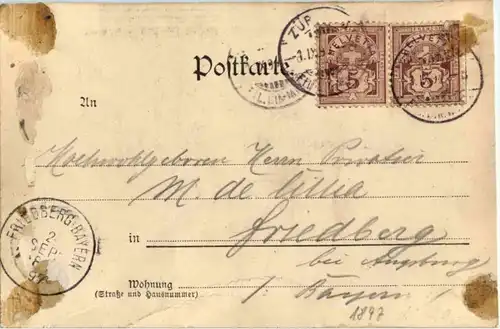 ZÜR
HELVETIA
5
HELVETIA
5
Postkarte
An
Hochwohlgeboren Herrn Privatier
M. de Lillia
in Friedberg
bei Augsburg
Wohnung / Bayern /
(Straße und Hausnummer)
1897
FRIEDBERG-BAYERN
2
SEP.
97